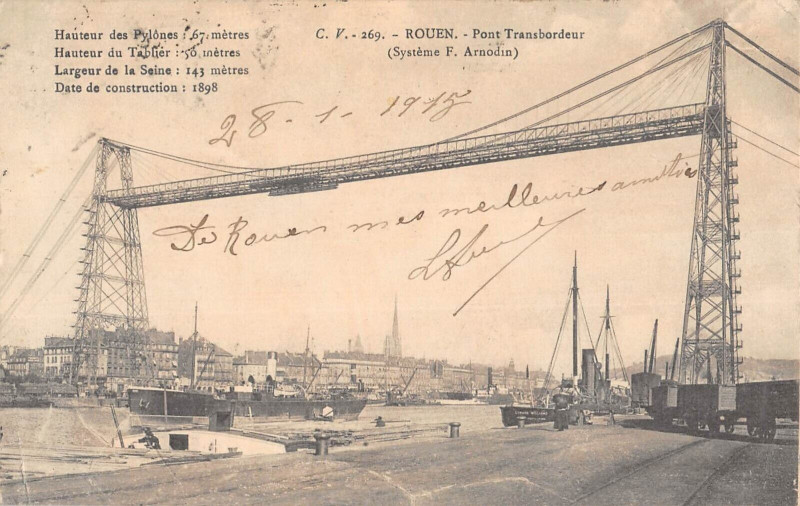 Hauteur des Pylônes : 67 mètres
Hauteur du Tablier : 50 mètres
Largeur de la Seine : 143 mètres
Date de construction : 1898
C. V. - 269. - ROUEN. - Pont Transbordeur
(Système F. Arnodin)
28-1-1915
De Rouen mes meilleures amitiés